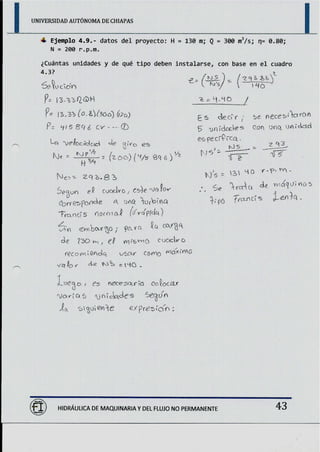 UNIVERSIDAD AUTÓNOMA DE CHIAPAS
Ejemplo 4.9.- datos del proyecto: H = 130 m; Q = 300 m³/s; η= 0.80;
N = 200 r.p.m.
¿Cuántas unidades y de qué tipo deben instalarse, con base en el cuadro
4.3?
Solución
P= 13.33 η Q H
P= 13.33 (0.8)(300)(130)
P= 415 896 CV --- ①
La velocidad de giro es
Ns = N P^½ / H^5/4 = (200)(415 896)^½
Ns = 293.83
Segun el cuadro, este valor
corresponde a una turbina
"Francis normal (ó rápida)
Sin embargo, para la carga
de 130 m, el mismo cuadro
recomienda usar como máximo
valor de NS = 140.
Luego, es necesario colocar
varias unidades según
la siguiente expresión:
z = (NS / N's)² = (293.83 / 140)²
z = 4.40 /
Es decir, se necesitaron
5 unidades con una unidad
especifica.
N's = NS / √z = 293 / √5
N's = 131.40 r.p.m.
∴ Se trata de máquinas
tipo Francis Lenta.
HIDRÁULICA DE MAQUINARIA Y DEL FLUJO NO PERMANENTE
43